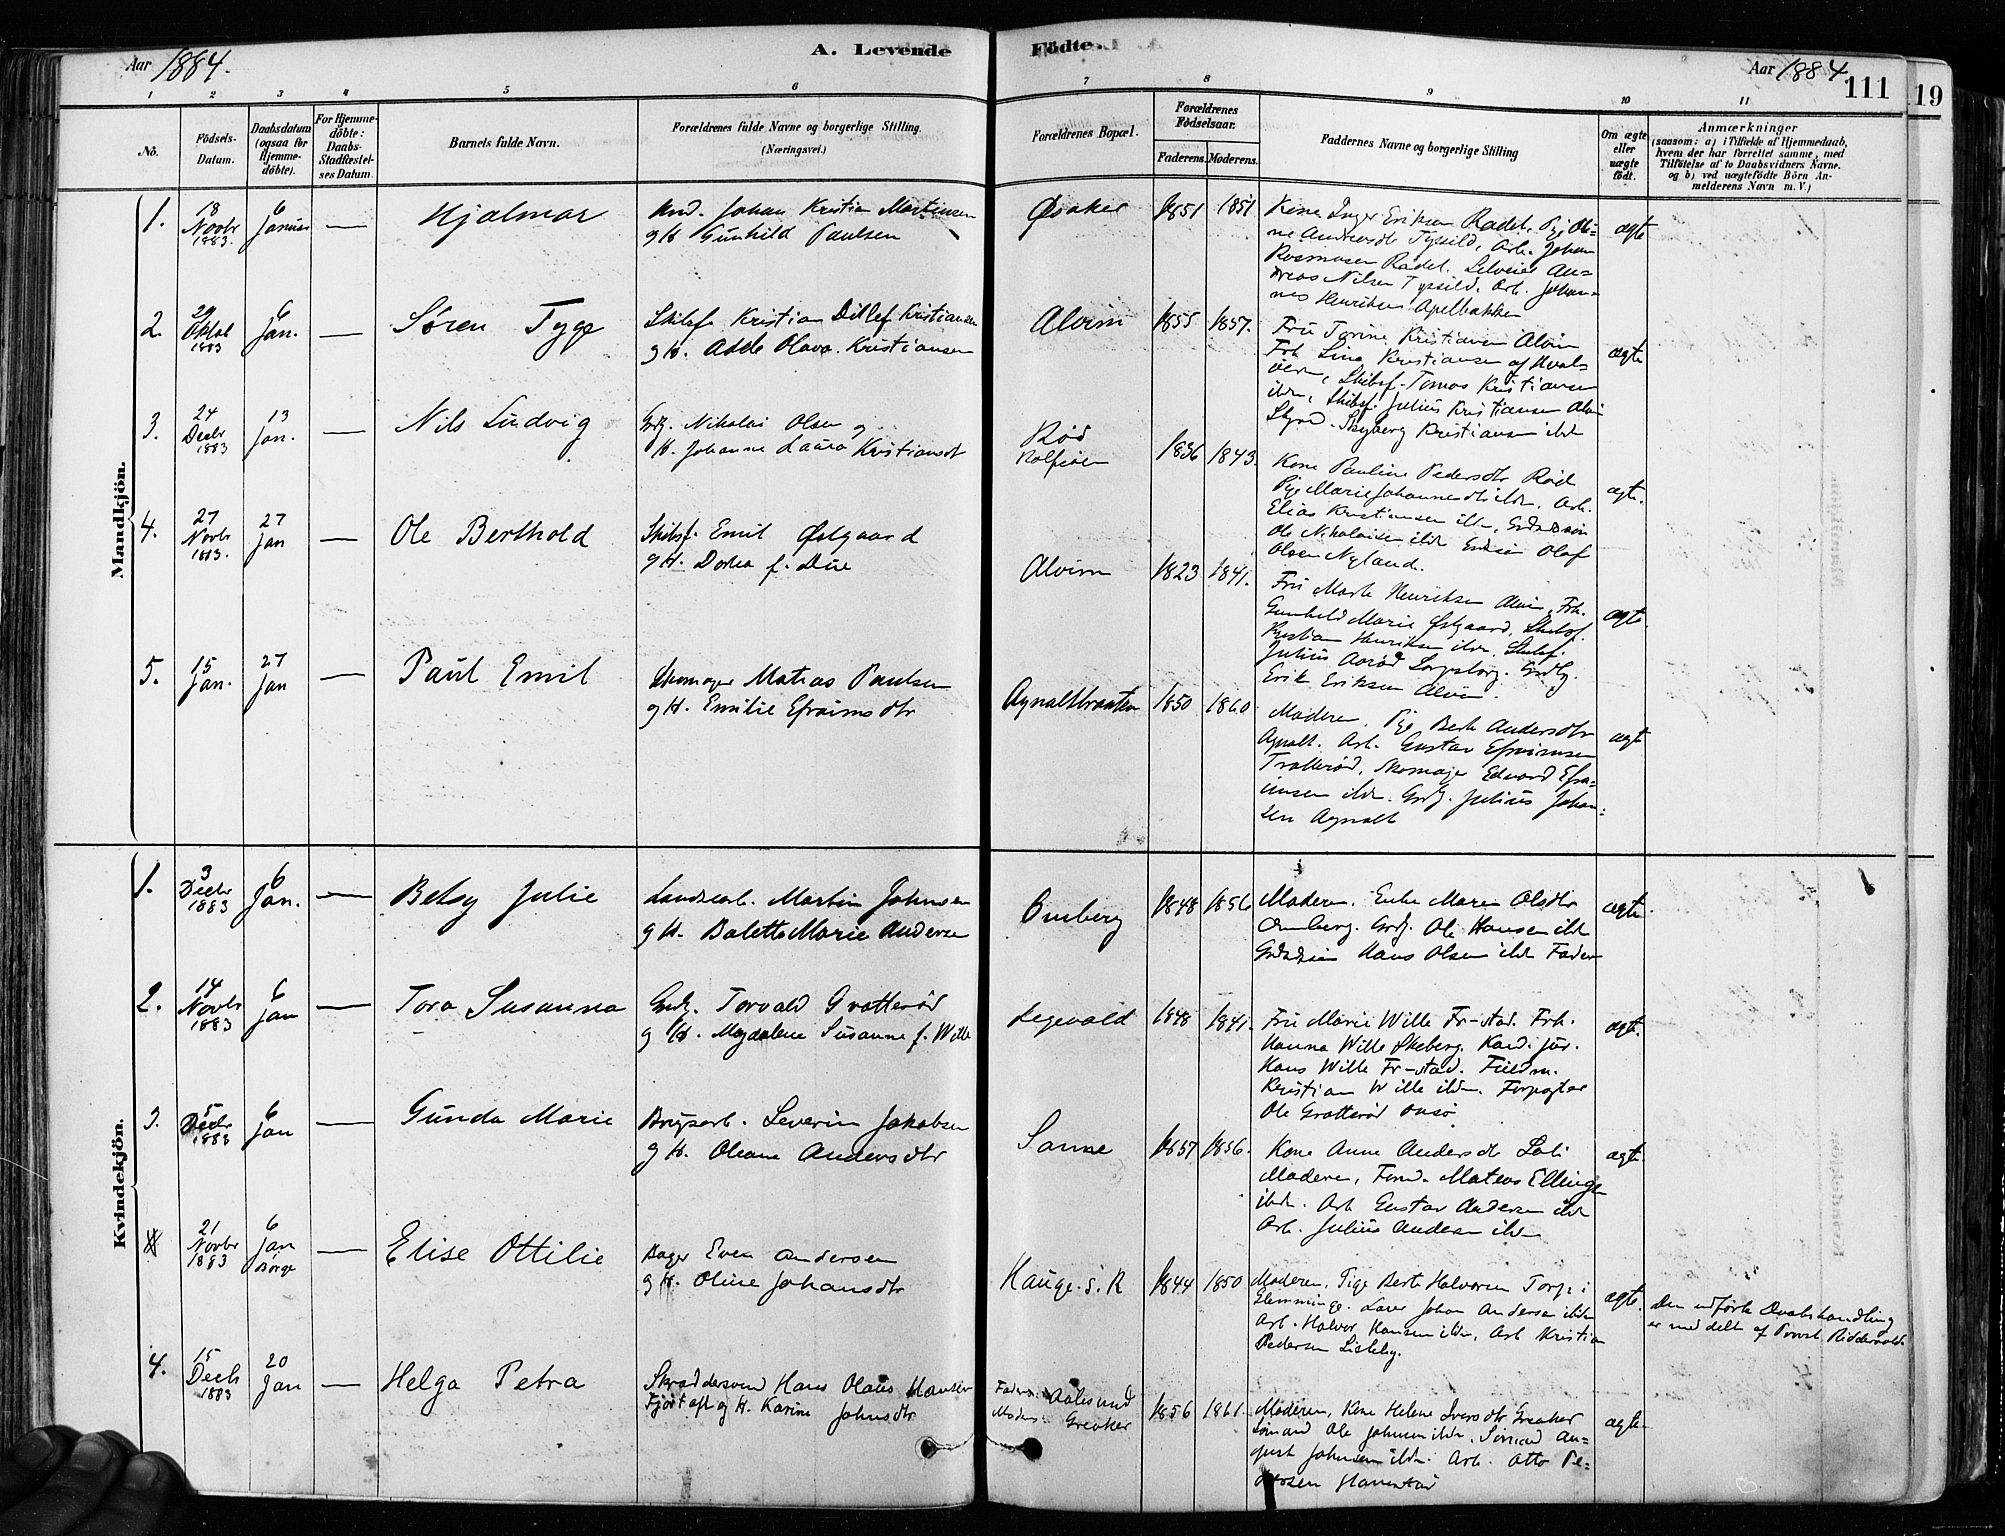 Aar 1884.
A. Levende Födte.
Aar 1884
111
19
1 2 3 4 5 6 7 8 9 10 11
No.
Födsels-Datum.
Daabsdatum (ogsaa for Hjemme-döbte).
For Hjemme-döbte: Daabs-Stadfæstel-ses Datum.
Barnets fulde Navn.
Forældrenes fulde Navne og borgerlige Stilling. (Næringsvei.)
Forældrenes Bopæl.
Forældrenes Födselsaar.
Faderens. Moderens.
Faddernes Navne og borgerlige Stilling
Om ægte eller uægte födt.
Anmærkninger
(saasom: a) i Tilfælde af Hjemmedaab, hvem der har forrettet samme, med Tilföielse af to Daabsvidners Navne. og b) ved uægtefödte Börn An-melderens Navn m. V.)
Mandkjön.
1. 18 Novbr 1883. 6 Januar — Hjalmar
Johan Kristian Martinsen
og H. Gunhild Paulsen
Øsaker 1851 1851
Kone Inger Eriksen Radet, Pige Oli=
ne Andreasdtr Tyssild, Arb. Johan
Rasmusen Radet. An=
dreas Nilsen Tyssild. Arb. Johan=
nes Henriksen Apelbakken
ægte
2. 29 Oktob 1883 6 Jan. — Søren Tygo
Skibsf. Kristian Ditlef Kristiansen
og H. Adele Olava Kristiansen
Alvim 1855 1857.
Fru Torine Kristiansen Alvim
Frk Lina Kristiansen af Hvals-
øern, Skibsf. Tomas Kristiansen
ibdn, Skibsf. Julius Kristiansen Alvim
Skyberg Kristiansen ibd
ægte
3. 24 Decbr 1883 13 Jan. — Nils Ludvig
Grdj. Nikolai Olsen og
H. Johanne Laura Kristiansdt
Rød
Rolfsøen 1836 1843.
Kone Pauline Pedersdtr Rød
Pige Marie Johannesdtr ibdn, Arb.
Elias Kristiansen ibdn, Grdssøn
Ole Nikolaisen ibd Olaf
Olsen Nyland.
ægte.
4. 27 Novbr 1883. 27 Jan — Ole Berthold
Skibsf. Emil Østgaard
og H. Dorka f. Due
Alvim 1823 1841.
Fru Marte Henriksen Alvim, Frk.
Gunhild Marie Østgaard, Skibsf.
Kristian Henriksen ibdn. Skibsf.
Julius Aarød Sarpsborg. Grdbg.
Erik Eriksen Alvim.
ægte.
5. 15 Jan. 27 Jan — Paul Emil
Skomager Matias Paulsen
og H. Emilie Efraimsdtr
Agnaltbraaten 1850 1860
Moderen, Pige Berte Andersdtr
Agnalt. Arb. Gustav Efraimsen
Tratterød, Skomager Edvard Efra=
imsen ibdn. Grdj. Julius Johan=
sen Agnalt
ægte
Kvindekjön.
1. 3 Decbr 1883 6 Jan. — Betsy Julie
Landsarb. Martin Johnsen
og H. Balette Marie Andersen
Omberg 1848 1856
Moderen, Enke Maren Olsdtr
Omberg. Grdj. Ole Hansen ibd
Grdssøn Hans Olsen ibdn Faderen
ægte.
2. 14 Novbr 1883 6 Jan — Tora Susanna
Grdj. Torvald Gratterød
og H. Magdalene Susanne f. Wille
Legevold 1848 1841.
Fru Marie Wille Fr-stad. Frk.
Hanna Wille Skeberg. Kand. jur.
Hans Wille Fr-stad. Fuldm.
Kristian Wille ibdn. Forpagter
Ole Gratterød Onsø
ægte.
3. 5 Decbr 1883 6 Jan — Gunda Marie
Brugsarb. Severin Jakobsen
og H. Oleane Andersdtr
Sanne 1857 1856.
Kone Anne Andersdtr
Moderen, Matias Ellingsen
ibdn. Arb Gustav Andersen ibd
Arb. Julius Andersen ibdn
ægte.
21 Novbr 1883 6 Jan Borge — Elise Ottilie
Bager Even Andersen
og H. Oline Johansdtr
Hauge. s. R 1844 1850
Moderen, Pige Berte Halvorsen Torp i
Glemminge. Johan Andersen ibdn
Arb. Halvor Hansen ibdn, Arb Kristian
Pedersen Lisleby.
ægte.
Den udførte Daabshandling
er meddelt af Provst Riddervold.
4. 15 Decb 1883 20 Jan — Helga Petra
Skræddersvend Hans Olaus Hansen
Fjørtoft og H. Karine Johnsdtr
Faderen: Aalesund
Moderen: Greaker
1856 1861.
Moderen, Kone Helene Iversdtr Greaker
Sømand Ole Johnsen ibdn. Sømand Au=
gust Johnsen ibdn. Arb. Otto Pe=
dersen
ægte